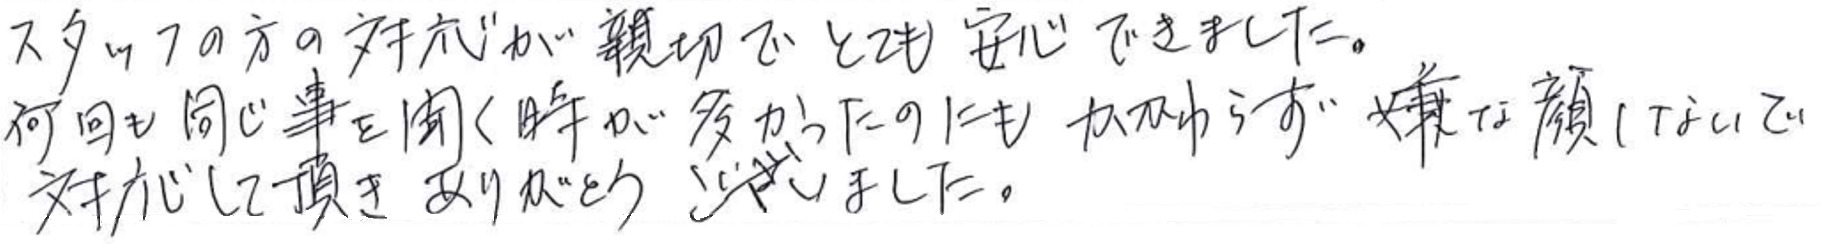 スタッフの方の対応が親切でとても安心できました。
何回も同じ事を聞く時が多かったのにもかかわらず嫌な顔しないで
対応して頂きありがとうございました。